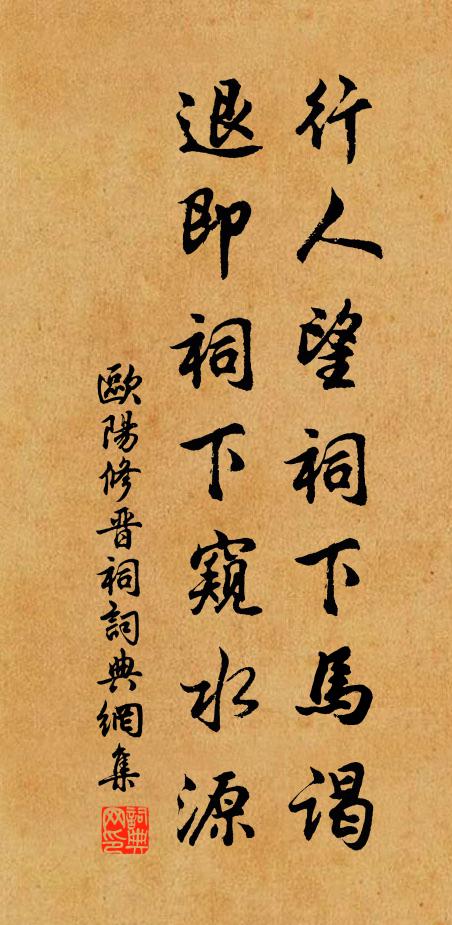 行人望祠下馬謁
退即祠下窺水源
歐陽修晋祠詞典網集
詞典網印